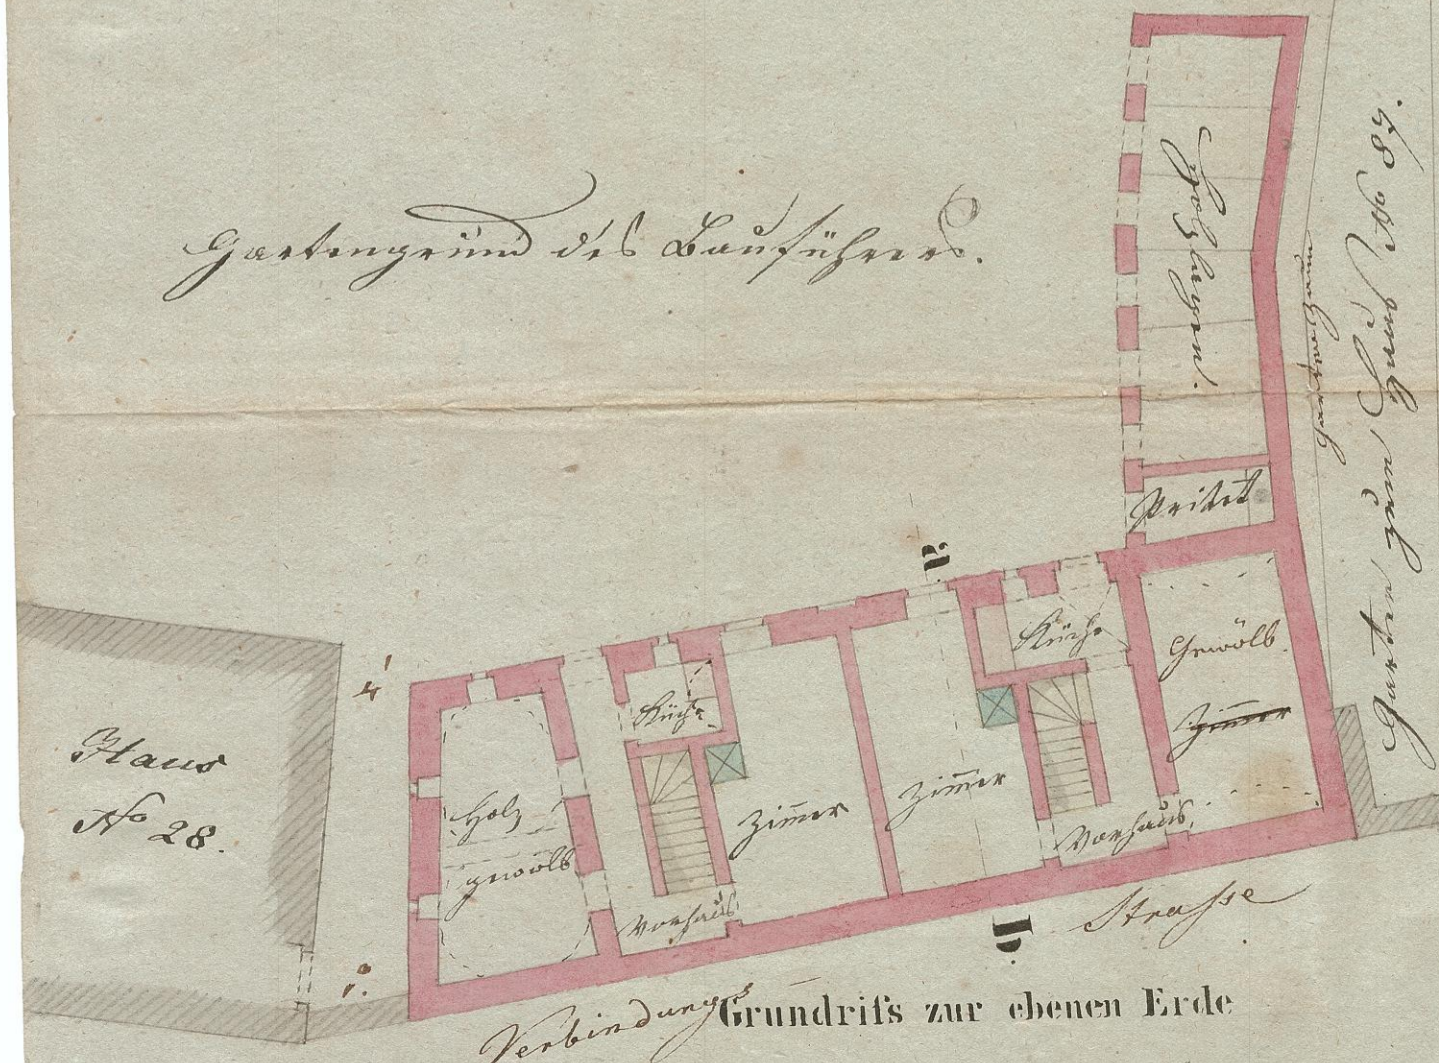 Gartengrund des Bauführers.
Holzlagen.
Gartenzaun
Garten zum Haus No 87.
Privet
a.
Küche
Gewölb.
Zimmer
4'
Küche
Haus
No 28.
Holz
gewölb
Zim̅er
Zim̅er
Vorhaus.
Vorhaus
1°.
b.
Verbindungs
Strasse
Grundriſs zur ebenen Erde